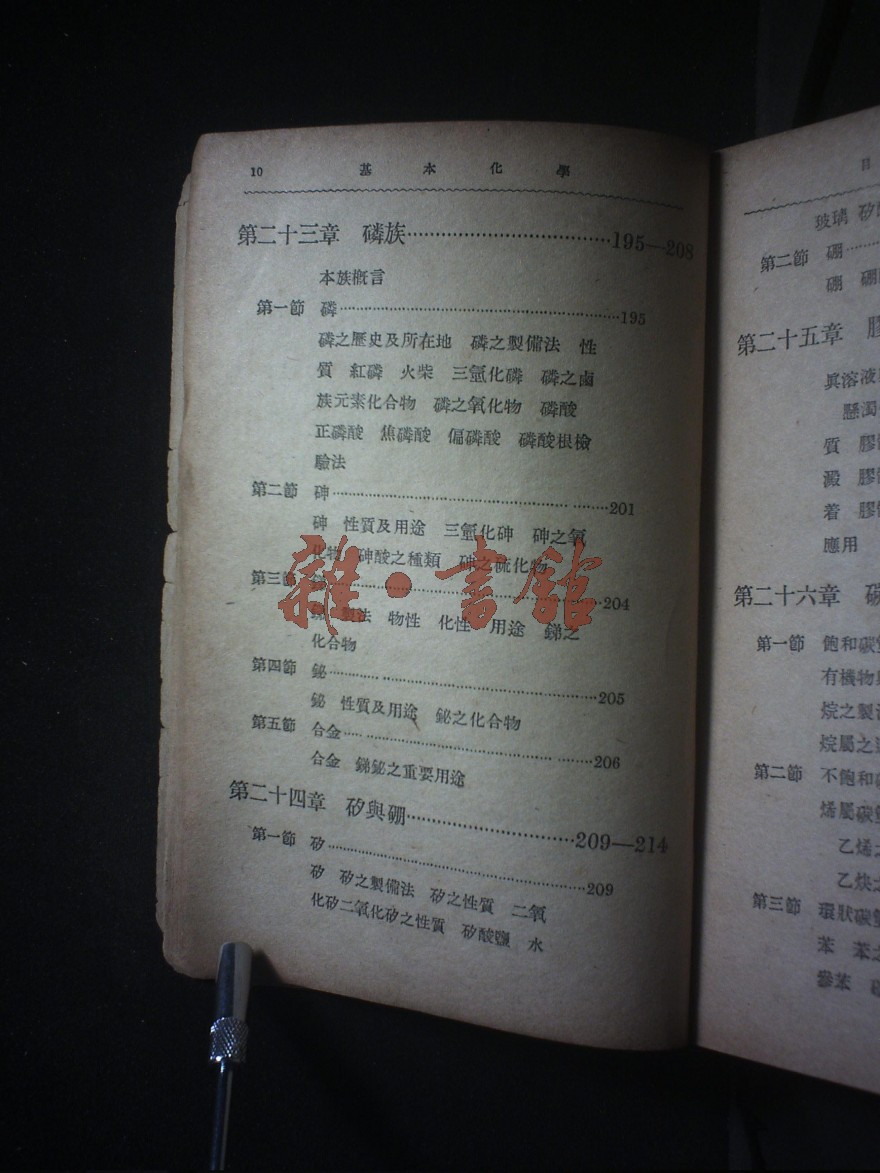 10 基本化學
第二十三章 磷族……195—208
本族概言
第一節 磷……195
磷之歷史及所在地 磷之製備法 性
質 紅磷 火柴 三氫化磷 磷之鹵
族元素化合物 磷之氧化物 磷酸
正磷酸 焦磷酸 偏磷酸 磷酸根檢
驗法
第二節 砷……201
砷 性質及用途 三氫化砷 砷之氧
化物 砷酸之種類 砷之硫化物
第三節……204
製法 物性 化性 用途 銻之
化合物
第四節 鉍……205
鉍 性質及用途 鉍之化合物
第五節 合金……206
合金 銻鉍之重要用途
第二十四章 矽與硼……209—214
第一節 矽……209
矽 矽之製備法 矽之性質 二氧
化矽二氧化矽之性質 矽酸鹽 水
雜·書館
目
玻璃
第二節 硼……
硼
第二十五章
真溶液
懸濁
質
澱
着
應用
第二十六章
第一節 飽和碳
有機物
烷之製
烷屬之
第二節 不飽和
烯屬碳
乙烯之
乙炔之
第三節 環狀碳
苯 苯之
參苯